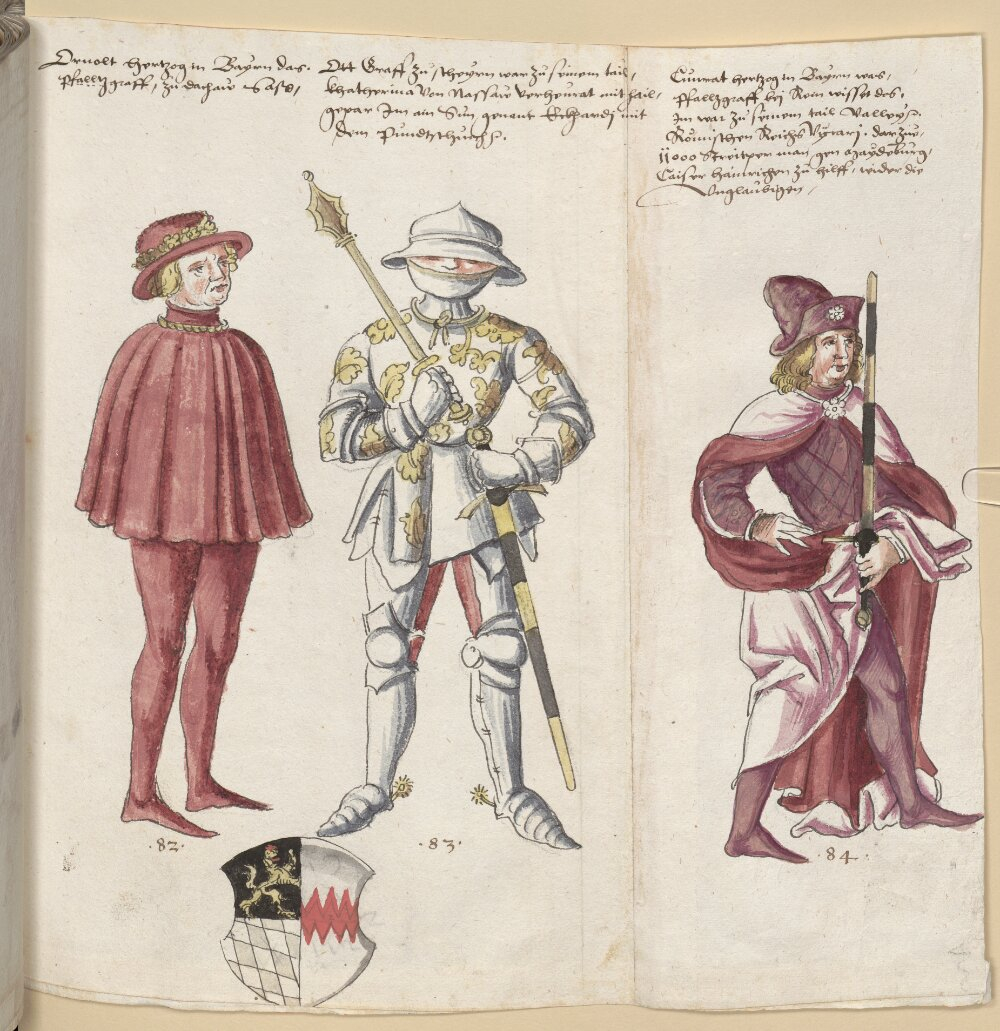 Ornolt Hertzog in Bayrn das.
Pfalltzgraff, zu dachaw
Ott Graff zu scheyrn war zu seinem tail,
khatherina von Nassaw verheurat mit hail,
gepar Im ain Sun genant Ekhardj mit
dem Pundtschuch.
Cunrat hertzog in Bayrn was,
Pfalltzgraff bej Rom wisset das.
Im war zu seinem tail Valley
Römischen Reichs Vicarj. dar zue,
11000 Streitper man gen Maydeburg,
Caiser Hainrichen zu hilff, wider die
Unglaubigen,
.82.
.83.
.84.